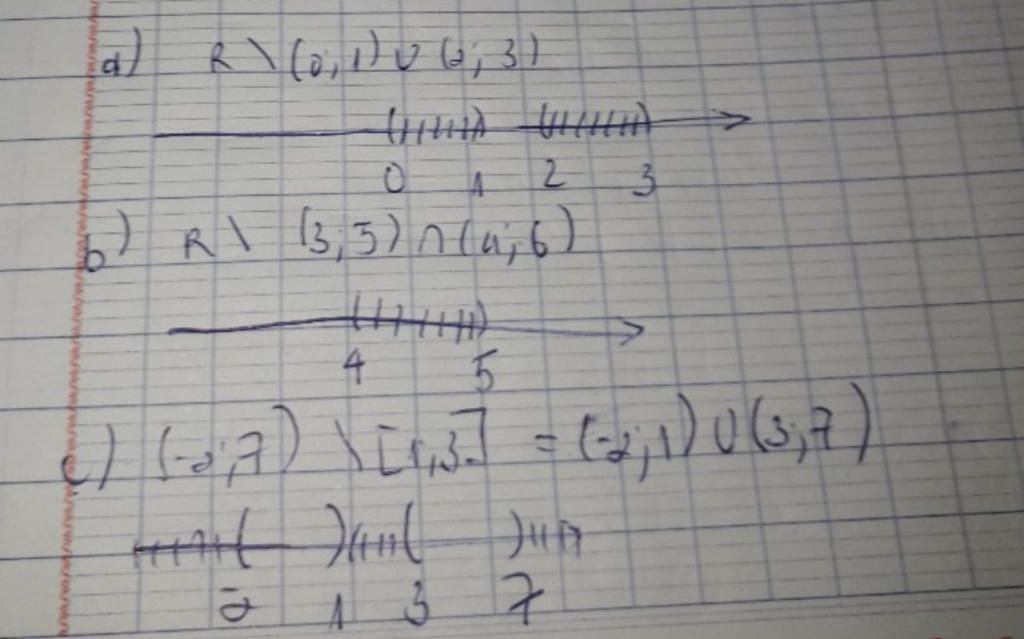 a) R \ (0; 1) ∪ (2; 3)
0 1 2 3
b) R \ (3; 5) ∩ (4; 6)
4 5
c) (-2; 7) \ [1; 3] = (-2; 1) ∪ (3; 7)
-2 1 3 7